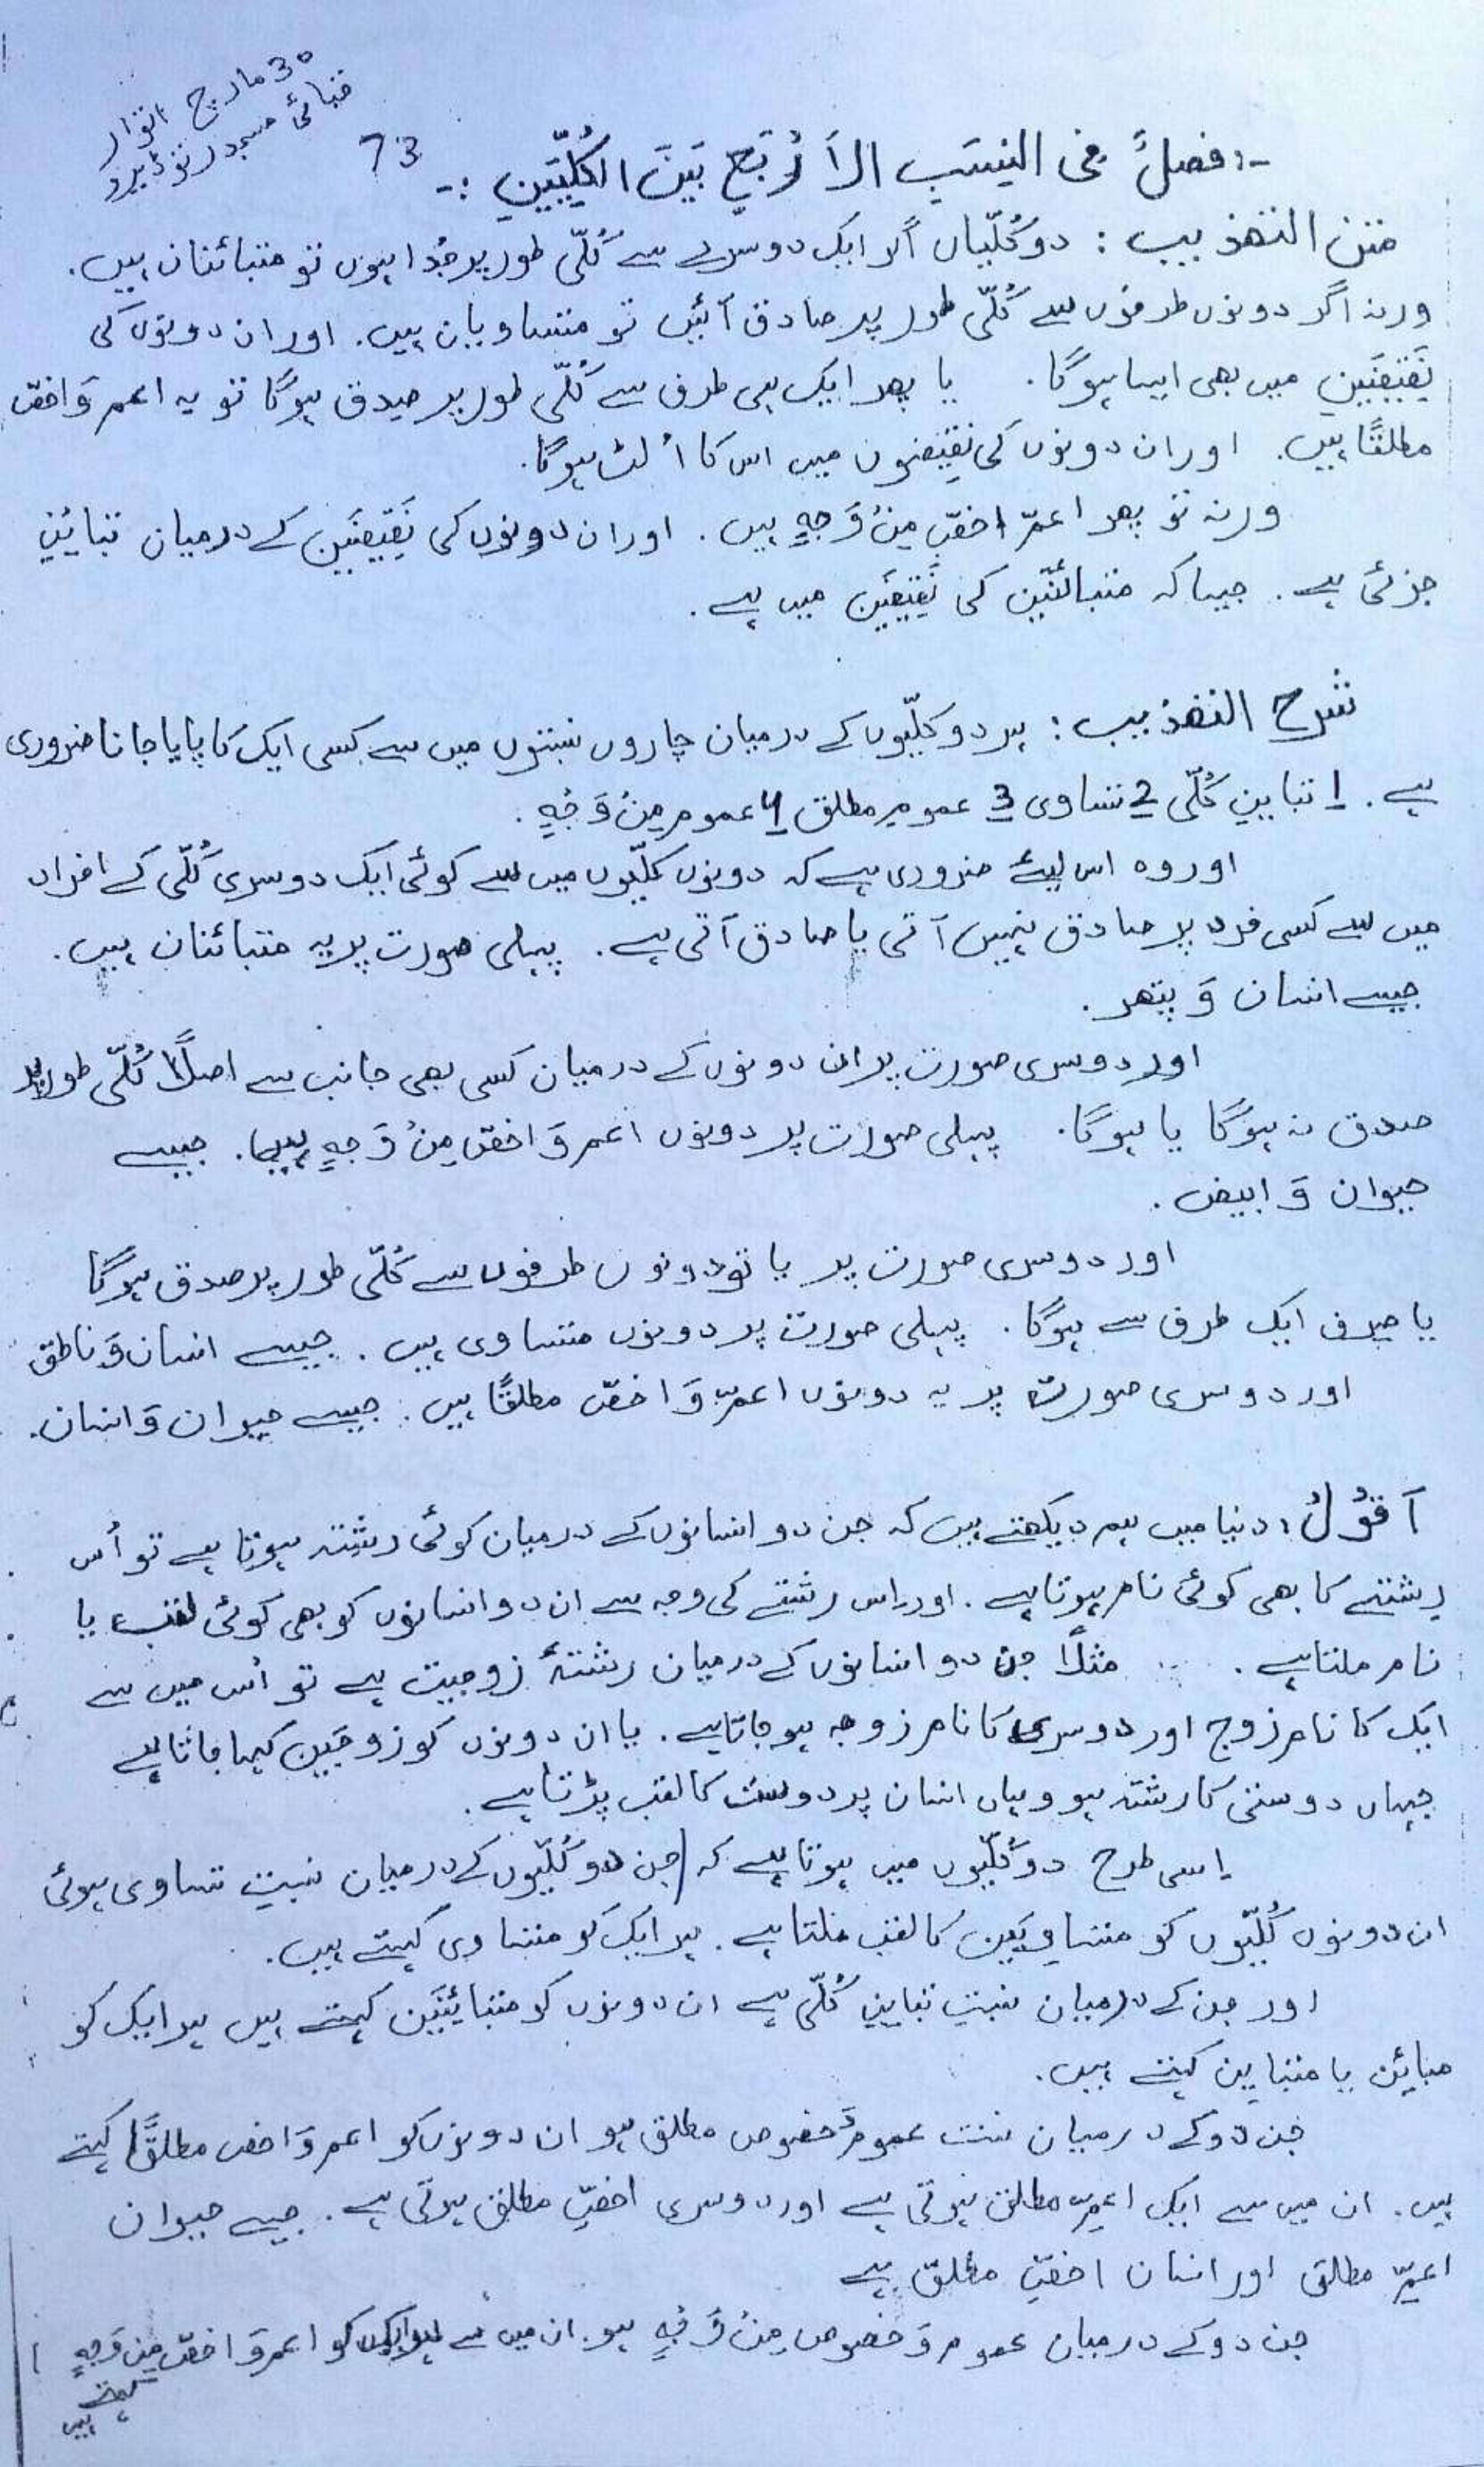 30 مارچ اتوار
مسجد
73
-: فصلٌ فی النِسَبِ الاَرْبَعِ بَیْنَ الکُلِّیَّیْنِ :-
متن التھذیب : دو کُلّیاں اگر ایک دوسرے سے کُلّی طور پر جُدا ہوں تو متبائنان ہیں.
ورنہ اگر دونوں طرفوں سے کُلّی طور پر صادق آئیں تو متساویان ہیں. اور ان دونوں کی
نَقِیْضَیْنِ میں بھی ایسا ہوگا. یا پھر ایک ہی طرف سے کُلّی طور پر صِدق ہوگا تو یہ اعم وَ اخصّ
مطلقًا ہیں. اور ان دونوں کی نَقِیْضوں میں اس کا اُلٹ ہوگا.
ورنہ تو پھر اعمّ اخصّ مِنْ وَجہٍ ہیں. اور ان دونوں کی نَقِیْضَیْن کے درمیان تبایُنِ
جزئی ہے. جیسا کہ متبائنَیْن کی نَقِیْضَیْن میں ہے.
شرح التھذیب : ہر دو کلّیوں کے درمیان چاروں نسبتوں میں سے کسی ایک کا پایا جانا ضروری
ہے. 1 تباینِ کُلّی 2 تساوی 3 عمومِ مطلق 4 عموم مِنْ وَجْہٍ.
اور وہ اس لیئے ضروری ہے کہ دونوں کلّیوں میں سے کوئی ایک دوسری کُلّی کے افراد
میں سے کسی فرد پر صادق نہیں آتی یا صادق آتی ہے. پہلی صورت پر یہ متبائنان ہیں.
جیسے انسان وَ پتھر.
اور دوسری صورت پر ان دونوں کے درمیان کسی بھی جانب سے اصلًا کُلّی طور پر
صدق نہ ہوگا یا ہوگا. پہلی صورت پر دونوں اعم وَ اخصّ مِنْ وَجہٍ ہیں. جیسے
حیوان وَ ابیض.
اور دوسری صورت پر یا تو دونوں طرفوں سے کُلّی طور پر صدق ہوگا
یا صِرف ایک طرف سے ہوگا. پہلی صورت پر دونوں متساوی ہیں. جیسے انسان وَ ناطق
اور دوسری صورت پر یہ دونوں اعمّ وَ اخصّ مطلقًا ہیں. جیسے حیوان وَ انسان.
اَقُوْلُ: دنیا میں ہم دیکھتے ہیں کہ جن دو انسانوں کے درمیان کوئی رشتہ ہوتا ہے تو اُس
رشتے کا بھی کوئی نام ہوتا ہے. اور اس رشتے کی وجہ سے ان دو انسانوں کو بھی کوئی لقب یا
نام ملتا ہے. مثلًا جن دو انسانوں کے درمیان رشتۂ زوجیت ہے تو اُس میں سے
ایک کا نام زوج اور دوسری کا نام زوجہ ہو جاتا ہے. یا ان دونوں کو زوجَین کہا جاتا ہے
جہاں دوستی کا رشتہ ہو وہاں انسان پر دوست کا لقب پڑتا ہے.
اِسی طرح دو کُلّیوں میں ہوتا ہے کہ جن دو کُلّیوں کے درمیان نسبتِ تساوی ہوئی
ان دونوں کُلّیوں کو متساوِیَین کا لقب ملتا ہے. ہر ایک کو متساوی کہتے ہیں.
اور جن کے درمیان نسبتِ تباینِ کُلّی ہے ان دونوں کو متبائِنَین کہتے ہیں ہر ایک کو
مبائن یا متباین کہتے ہیں.
جن دو کے درمیان نسبت عموم وَ خصوص مطلق ہو ان دونوں کو اعم وَ اخص مطلقًا کہتے
ہیں. ان میں سے ایک اعمِّ مطلق ہوتی ہے اور دوسری اخصِّ مطلق ہوتی ہے. جیسے حیوان
اعمِّ مطلق اور انسان اخصِّ مطلق ہے
جن دو کے درمیان عموم وَ خصوص مِنْ وَجْہٍ ہو. ان میں سے ہر ایک کو اعم وَ اخصّ مِن وَجہٍ
کہتے
ہیں